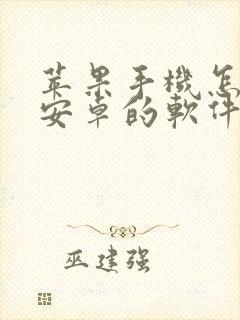 苹果手機怎
安卓的軟件
巫建强